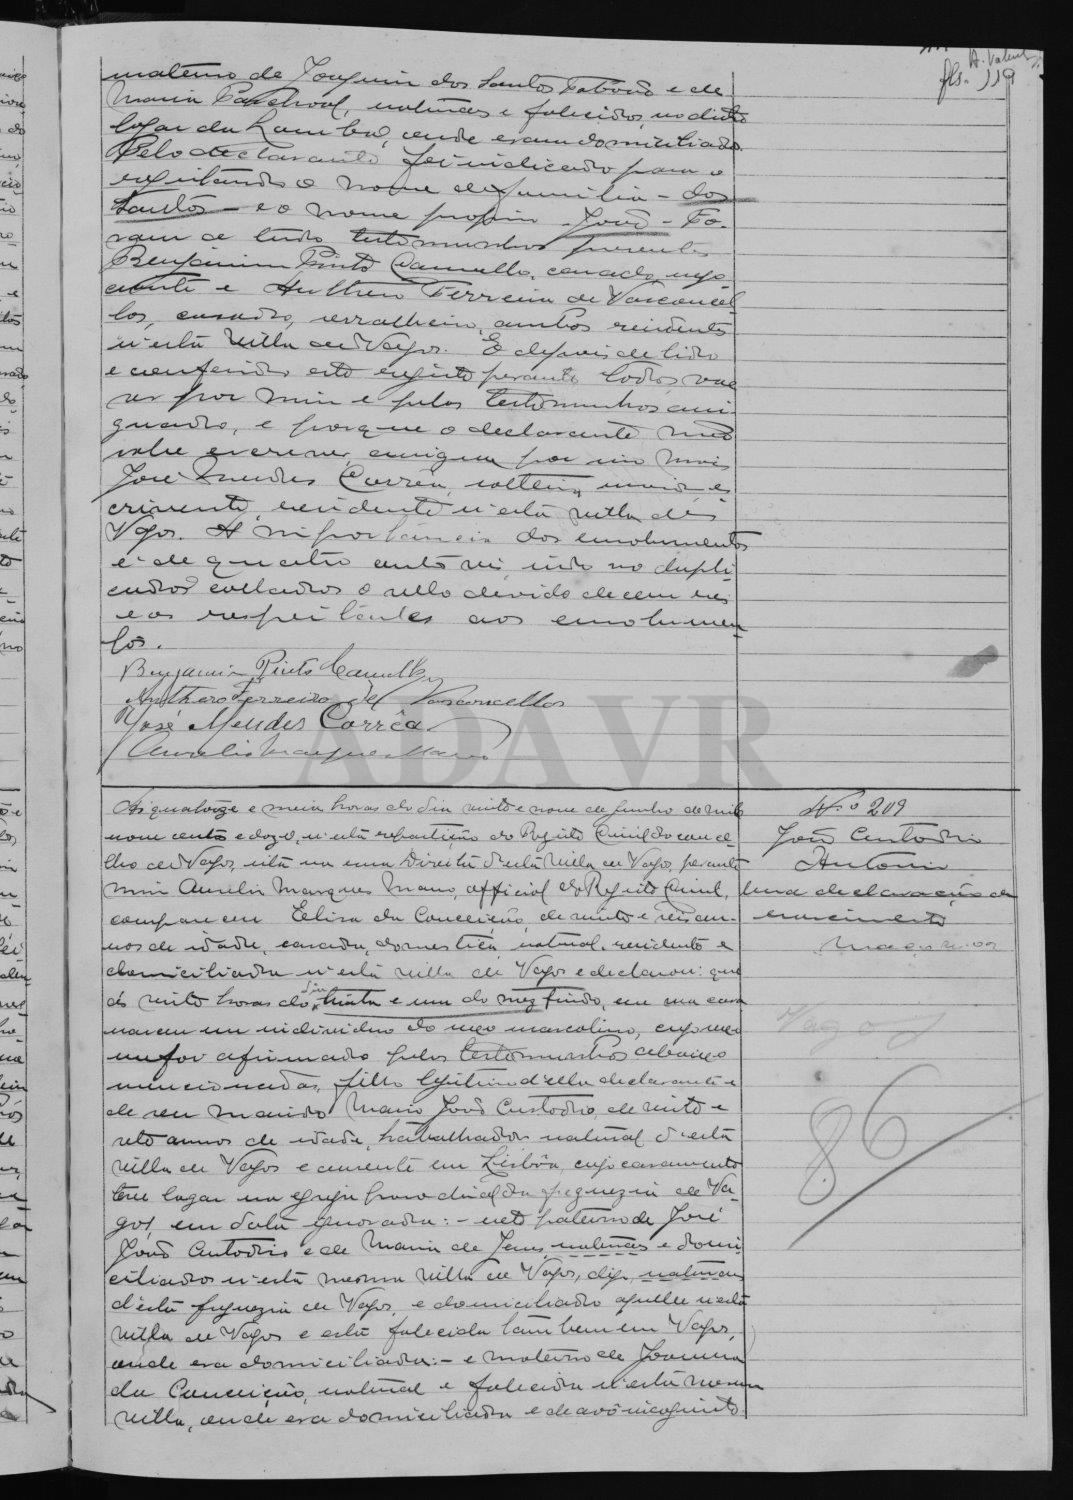 A. Valent
fls. 119
materno de Joaquim dos Santos Taboão e de
Maria Paschoal, naturaes e falecidos, no dicto
logar da Lomba, onde eram domiciliados.
Pelo declarante foi indicado para o
registando o nome de familia - dos
Santos - e o nome proprio - João - Fo-
ram a tudo testemunhas presentes
Benjamim Pinto Camello, casado, nego-
ciante e Anthero Ferreira de Vasconcel-
los, casado, serralheiro, ambos residentes
n'esta villa de Vagos. E depois de lido
e conferido este registo perante todos vae
ser por mim e pelas testemunhas assi-
gnado, e porque o declarante não
sabe escrever, assigna por elle
José Mendes Corrêa, solteiro, maior, es-
crevente, residente n'esta villa de
Vagos. A importancia dos emolumentos
é de quatro centos reis, indo no dupli-
cado collados o sello devido de cem reis
e os respeitantes aos emolumen-
tos.
Benjamim Pinto Camello
Anthero Ferreira de Vasconcellos
José Mendes Corrêa
Aurelio Marques Mano
ADAVR
Nº 209
João Custodio
Antonio
Uma declaração de
nascimento
Vagos
86
Ás quatorze e meia horas do dia vinte e nove de Junho de mil
nove centos e doze, n'esta repartição do Registo Civil do conce-
lho de Vagos, sita na rua Direita d'esta villa de Vagos, perante
mim Aurelio Marques Mano, official do Registo Civil,
compareceu Elisa da Conceição, de vinte e seis an-
nos de idade, casada, domestica, natural, residente e
domiciliada n'esta villa de Vagos e declarou: que
ás vinte horas do dia trinta e um do mez findo, em sua casa
nasceu um individuo do sexo masculino, cujo sexo
me foi afirmado pelas testemunhas abaixo
mencionadas, filho legitimo d'ella declarante e
de seu marido Mario João Custodio, de vinte e
sete annos de idade, trabalhador, natural d'esta
villa de Vagos e ausente em Lisbôa, cujo casamento
teve logar na egreja parochial da freguezia de Va-
gos, em data ignorada: - neto paterno de José
João Custodio e de Maria de Jesus, naturaes e domi-
ciliados n'esta mesma villa de Vagos, digo, naturaes
d'esta freguezia de Vagos, e domiciliado aquelle n'esta
villa de Vagos e esta falecida tambem em Vagos,
onde era domiciliada: - e materno de Joanna
da Conceição, natural e falecida n'esta mesma
villa, onde era domiciliada e de avô incognito.